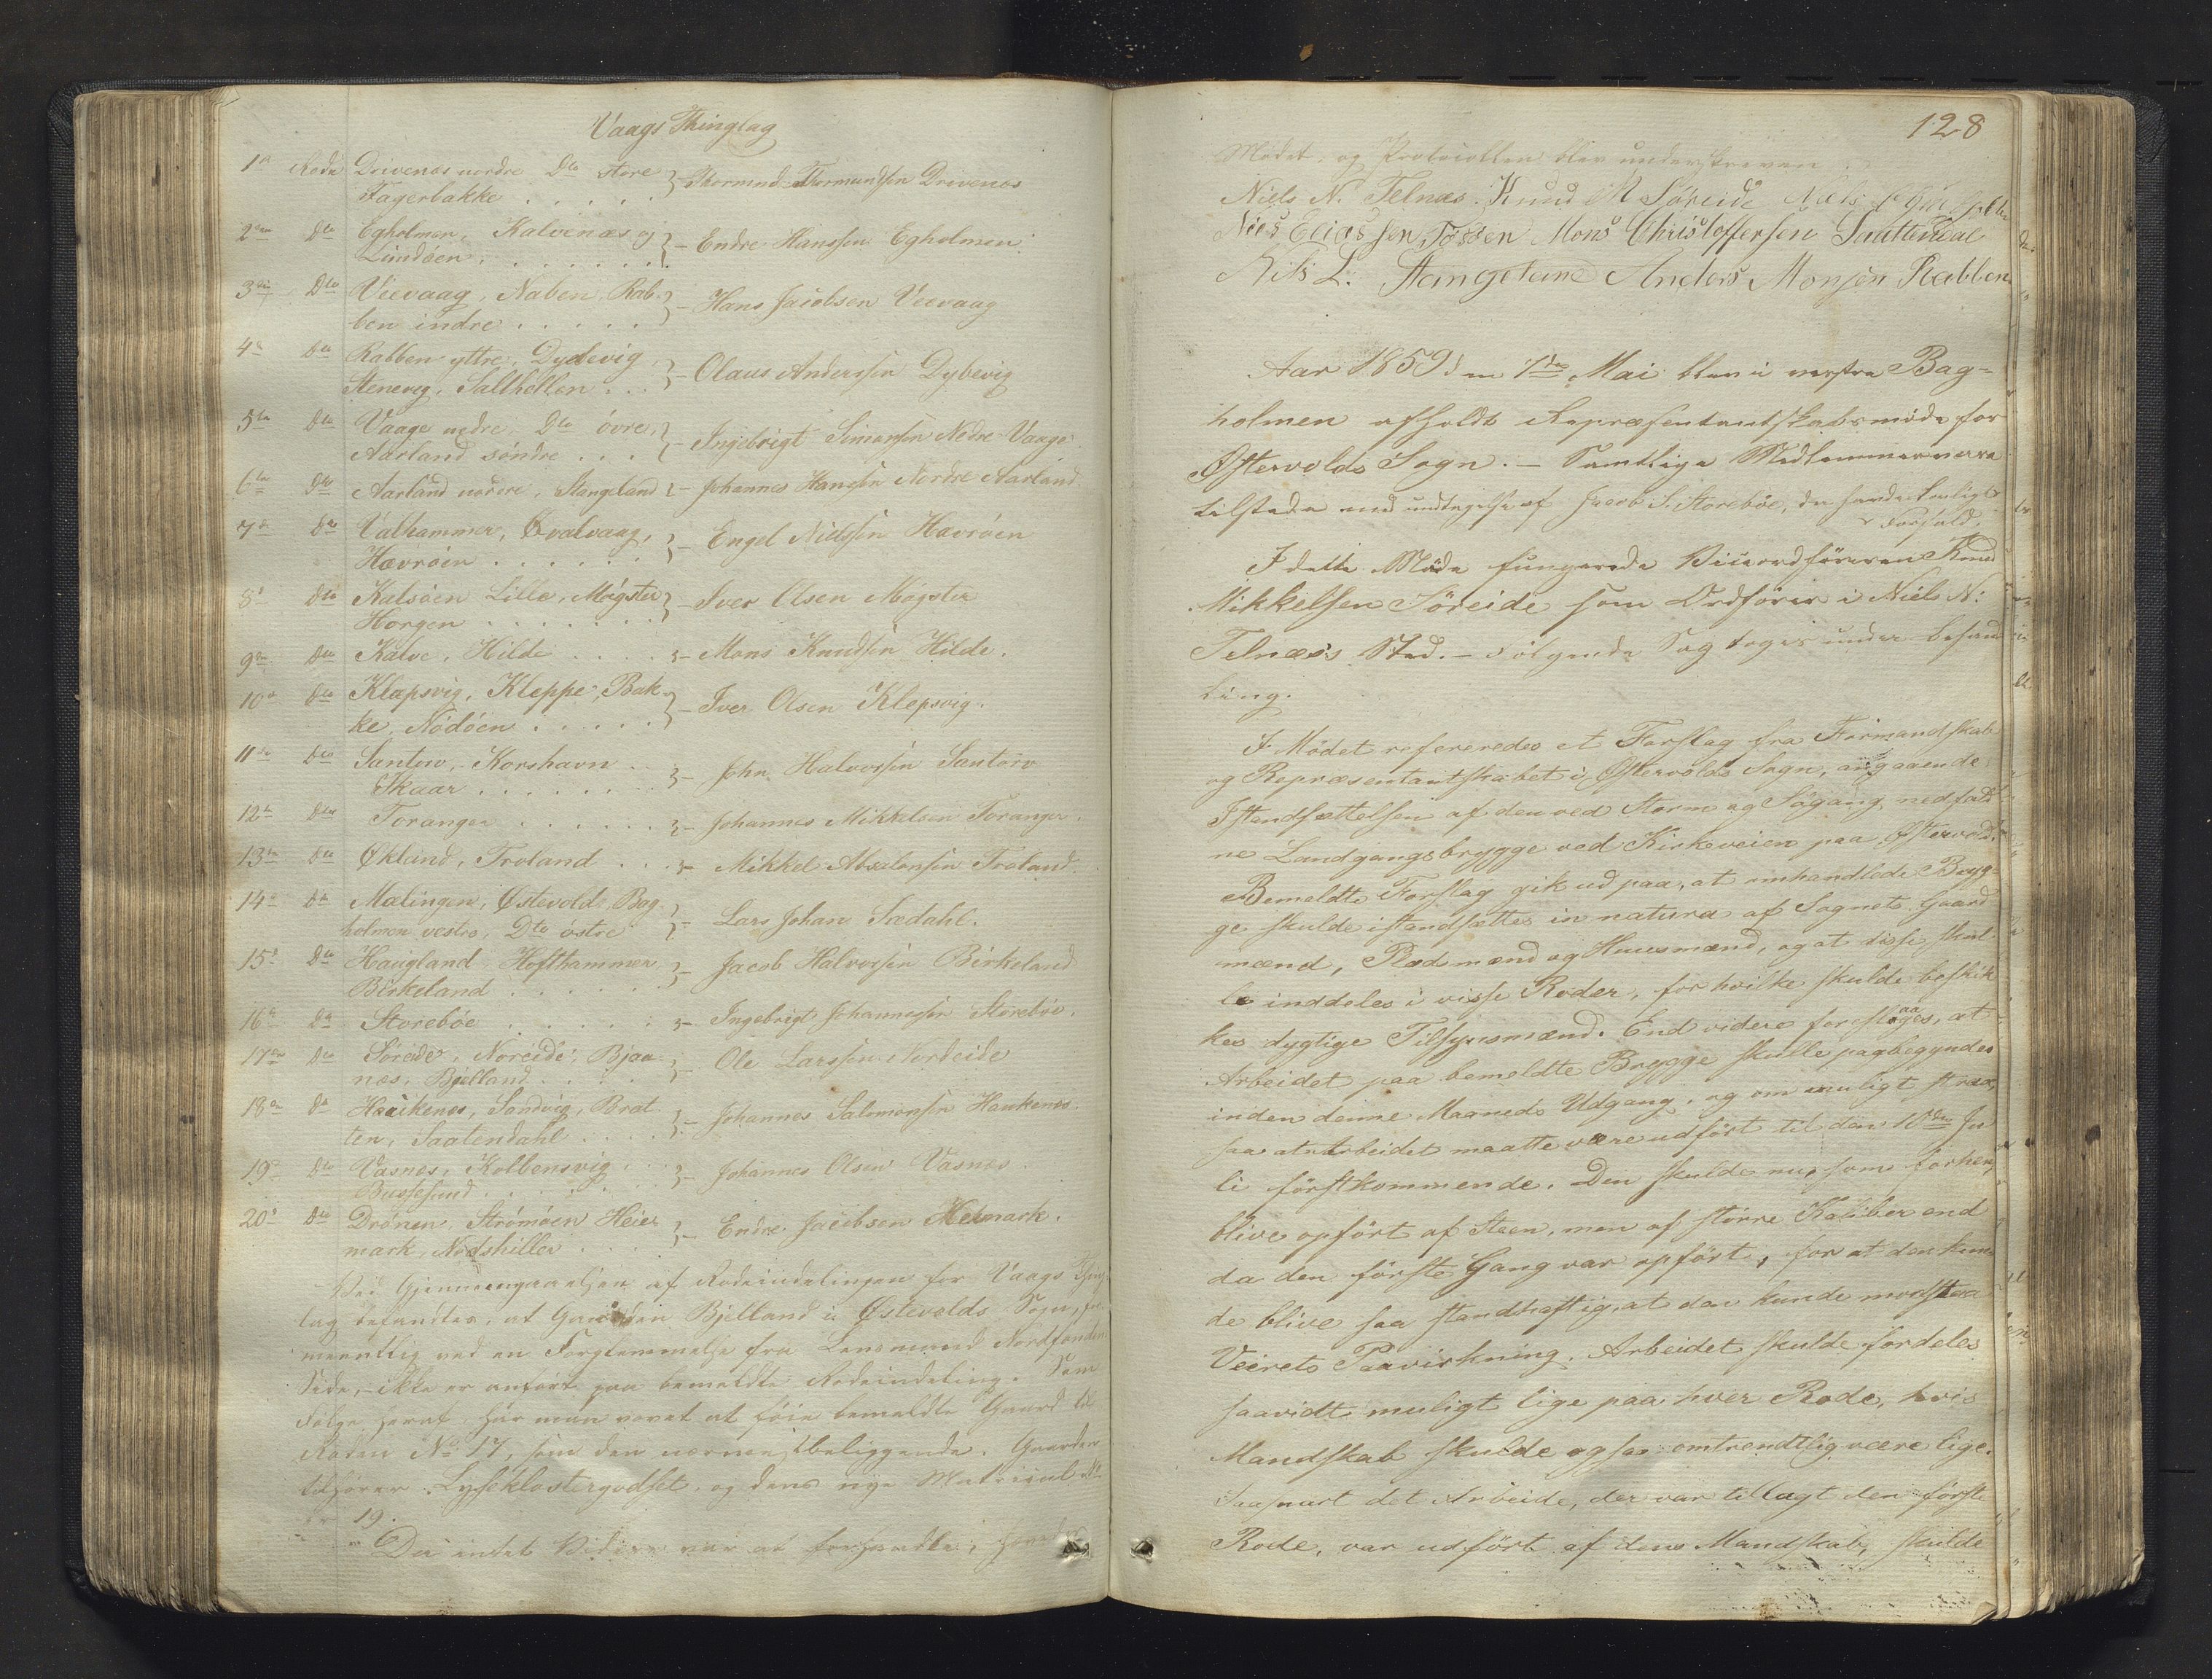 Vaags Thinglag
1ste Rode Drivenæs nordre Dto store } - Thormod Thormundsen Drivenes
Fagerbakke . . . . .
2den Dto Egholmen, Kalvenæs og } - Endre Hanssen Egholmen
Lindöen . . . . . . .
3die Dto Veevaag, Naben, Rab- } - Hans Jacobsen Veevaag
ben indre . . . . .
4de Dto Rabben yttre, Dybevig } - Olaus Anderssen Dybevig
Stenevig, Salthellen . . .
5te Dto Vaage nedre, Dto övre, } - Ingebrigt Simonsen Nedre Vaage
Aarland söndre . . .
6te Dto Aarland nordre, Stangeland } - Johannes Hanssen Nordre Aarland.
7de Dto Valhammer, Qvalvaag, } - Engel Nielssen Havröen
Havröen . . . . . .
8de Dto Kalsöen Lille, Mögster } - Iver Olsen Mögster
Horgen . . . . . . .
9de Dto Kalve, Hilde . . . . } - Mons Knudsen Hilde.
10de Dto Klepsvig, Kleppe, Bak- } - Iver Olsen Klepsvig.
ke, Nödöen . . . . .
11te Dto Santorv, Korshavn . . } - John Halvorsen Santorv
Skaar . . . . . . .
12te Dto Toranger . . . . . . } - Johannes Mikkelsen Toranger.
13de Dto Økland, Troland . . . } - Mikkel Absalonsen Troland.
14de Dto Mælingen, Østevold, Bag- } - Lars Johan Sædahl.
holmen vestre, Dto östre
15de Dto Haugland, Hofthammer, } - Jacob Halvorsen Birkeland
Birkeland . . . . .
16de Dto Storeböe . . . . . . } - Ingebrigt Johannessen Storeböe.
17de Dto Söreide, Noreide, Bjaa- } - Ole Larssen Nordeide
næs, Bjelland . . . .
18de Dto Haukenes, Sandvig, Brat- } - Johannes Salomonsen Haukenes.
ten, Saatendahl . . . .
19de Dto Vasnes, Kolbensvig . . } - Johannes Olsen Vasnes.
Bussesund . . . . .
20de Dto Drönen, Strömöen, Heie- } - Endre Jacobsen Heiemark.
mark, Nodshiller . . .
Ved Gjennemgaaelsen af Rodeindelingen for Vaags Thing-
lag befandtes, at Gaarden Bjelland i Østevolds Sogn, for-
mentlig ved en Forglemmelse fra Lensmand Nordtvendts
Side, - ikke er anført paa bemeldte Rodeindeling. Som
Følge heraf har man vovet at føie bemeldte Gaard til
Roden No 17, som den nærmest beliggende. Gaarden
tilhører Lyseklostergodset, og dens nye Matricul No
er 19.
Da intet Videre var at forhandle, hævedes
128
Mødet, og Protocollen blev underskreven
Niels N. Telnæs. Knud M Söreide
Niels Eliassen Fossen Mons Christoffersen Saattendal
Nils L. Stangeland Anders Monsen Rabben
Aar 1859 den 7de Mai blev i vestre Bag-
holmen afholdt Repræsentantskabsmöde for
Østervolds Sogn. - Samtlige Medlemmer vare
tilstede med undtagelse af Jacob S. Storeböe, der havde lovligt
Forfald.
I dette Möde fungerede Viceordföreren Knud
Mikkelsen Söreide som Ordförer i Niels N:
Telnæs's Sted. - Fölgende Sag toges under behand-
ling.
I Mödet refereredes et Forslag fra Formandskab
og Repræsentantskabet i Østervolds Sogn, angaaende
Istandsættelsen af den ved Storm og Sögang nedfald-
ne Landgangsbrygge ved Kirkeveien paa Østervold.
Bemeldte Forslag gik ud paa, at omhandlede Bryg-
ge skulde istandsættes in natura af Sognets Gaard-
mænd, Pladsmænd og Huusmænd, og at disse skul-
le inddeles i visse Roder, for hvilke skulde beskik-
kes dygtige Tilsynsmænd. End videre foreslaaes, at
Arbeidet paa bemeldte Brygge skulle paabegyndes
inden denne Maaneds Udgang, og om muligt strax,
saa at Arbeidet maatte være udfört til den 10de Ju-
li förstkommende. Den skulde nu, som forhen,
blive opfört af Steen, men af större Kaliber end
da den förste Gang var opfört, for at den kun-
de blive saa standhaftig, at den kunde modstaa
Veirets Paavirkning. Arbeidet skulde fordeles
saavidt muligt lige paa hver Rode, hvis
Mandskab skulde ogsaa omtrendtlig være lige.
Saasnart det Arbeide, der var tillagt den förste
Rode, var udfört af dens Mandskab, skulde